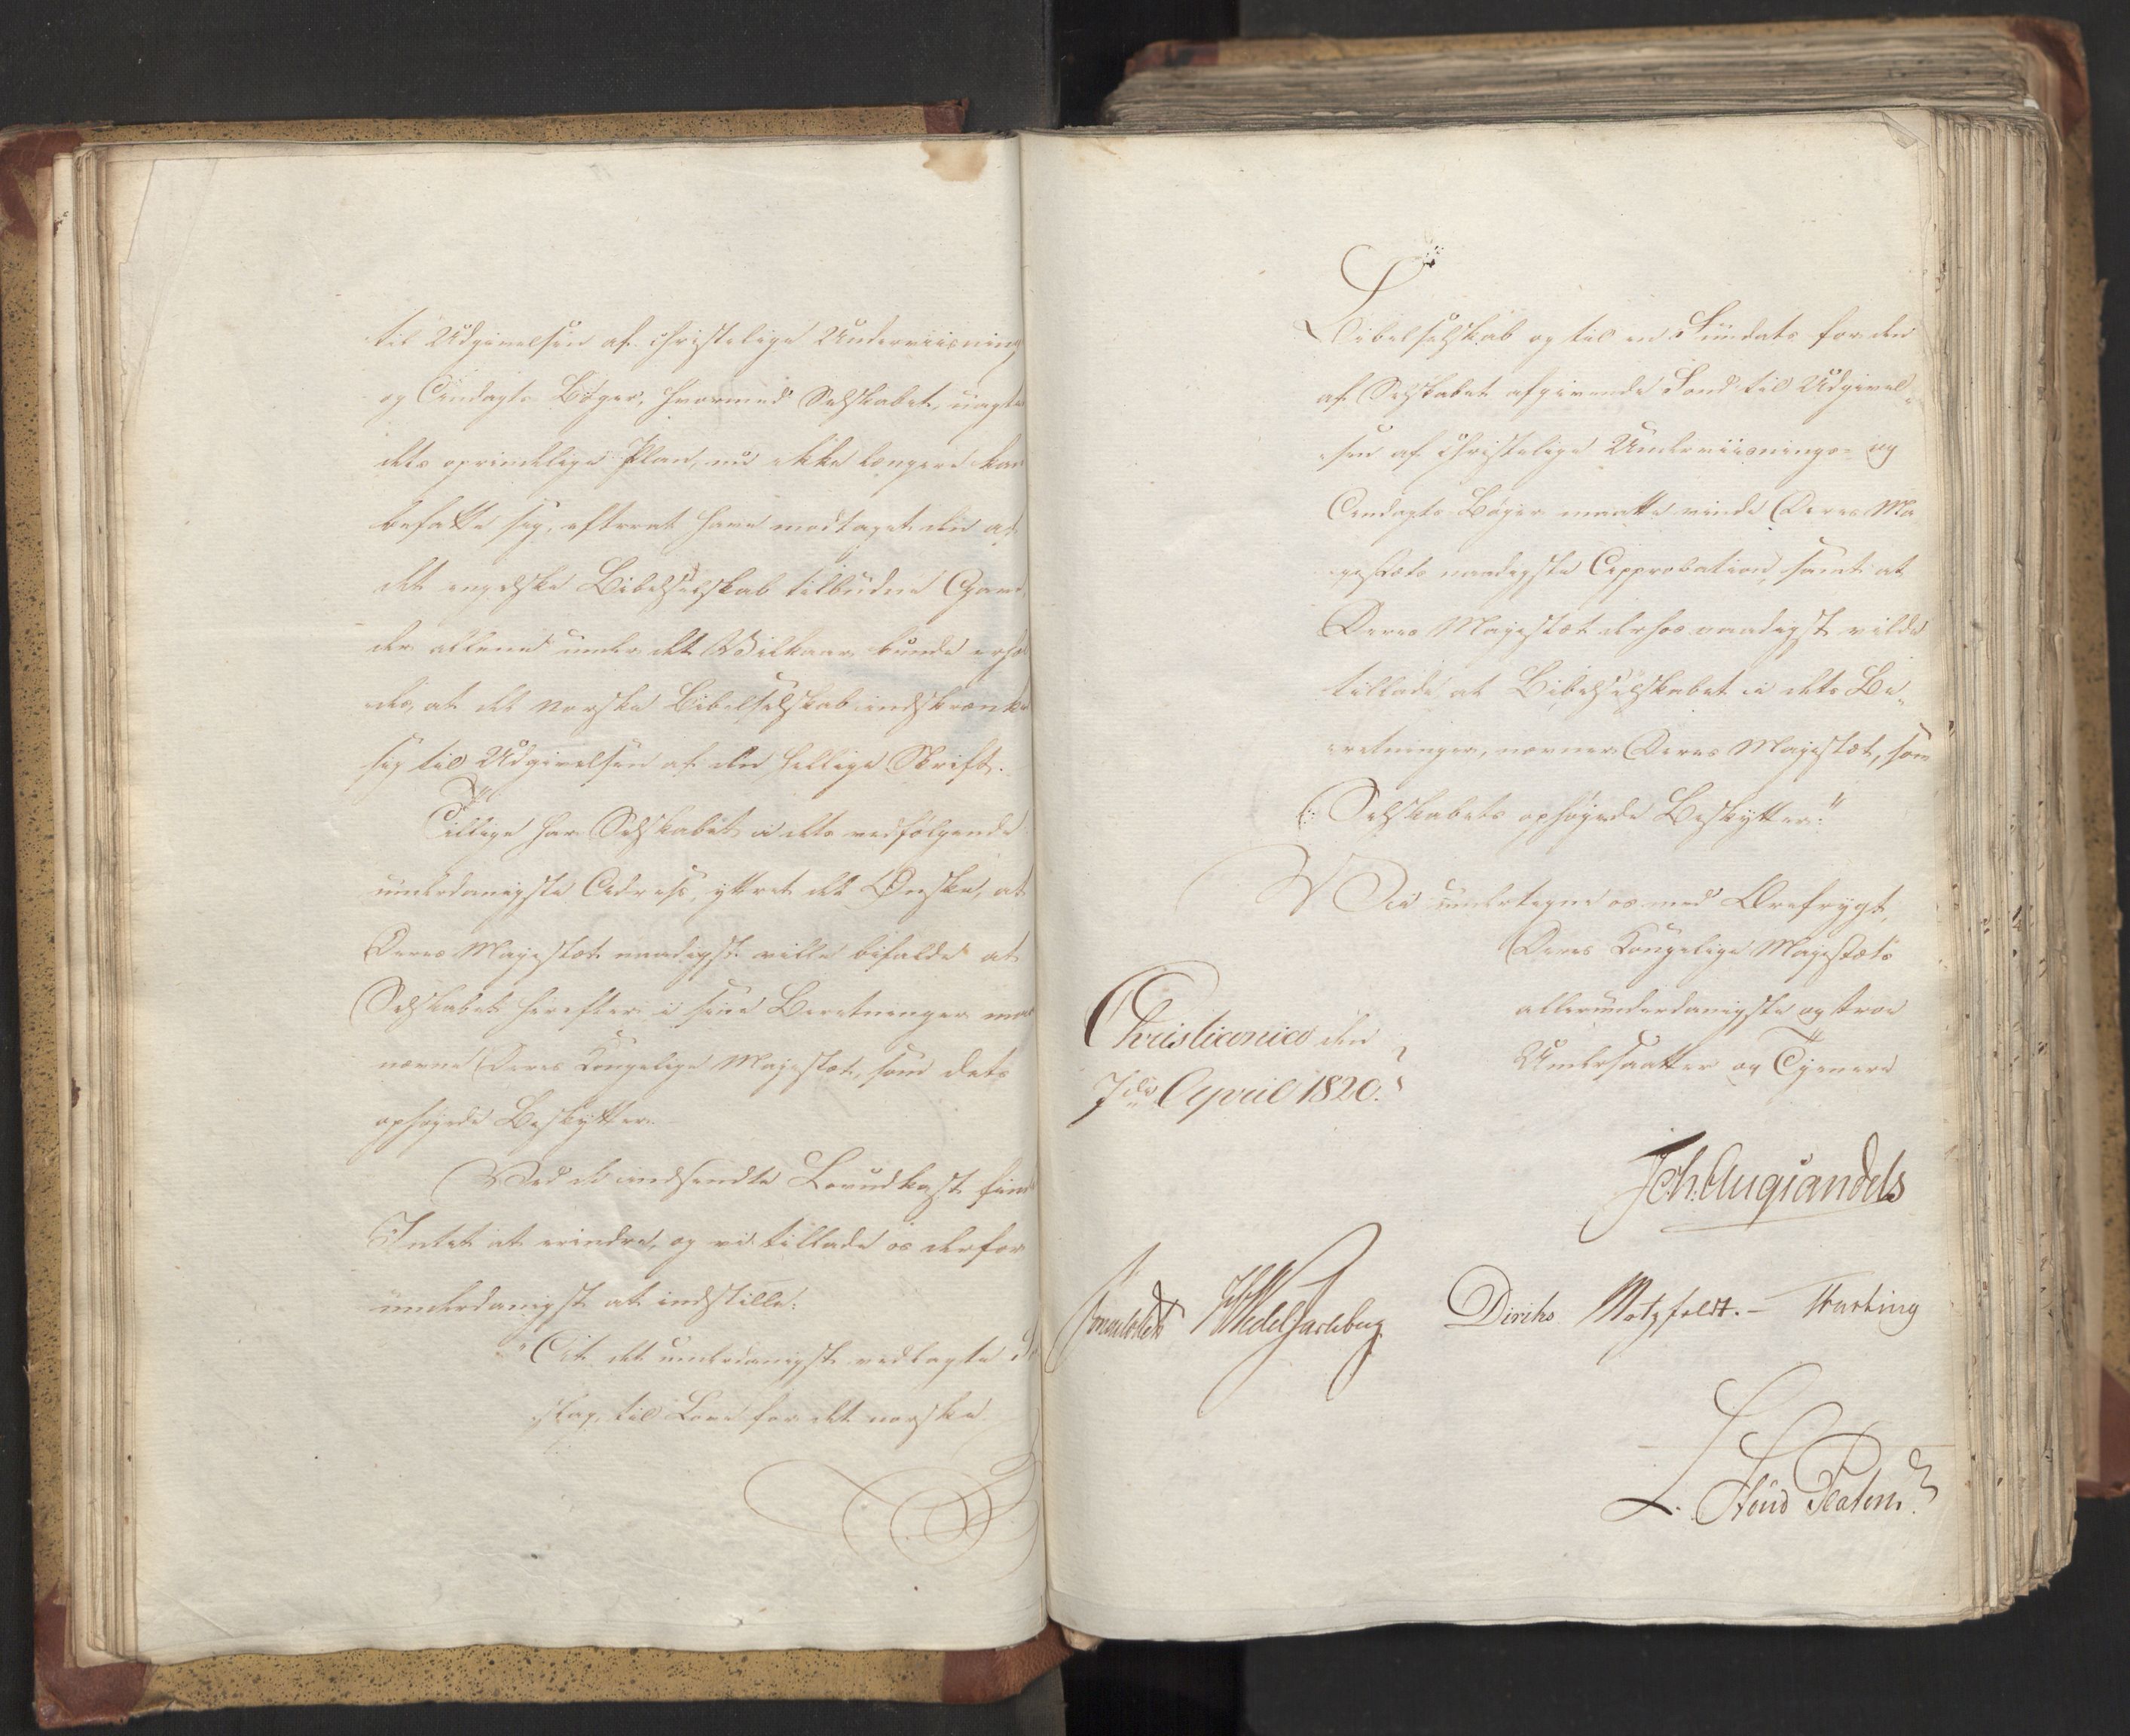 til Udgivelsen af christelige Underviisning
og Andagts Bøger, hvormed Selskabet, uagtet
dets oprindelige Plan, nu ikke længere kan
befatte sig, efterat have modtaget den af
det engelske Bibelselskab tilbudne Gave,
der allene under det Vilkaar kunde erhol
des, at det norske Bibelselskab indskrænke
sig til Udgivelsen af den hellige Skrift.
Tillige har Selskabet i dets vedfølgende
underdanigste Adresse, yttret det Ønske, at
Deres Majestæt naadigst ville bifalde at
Selskabet herefter i sine Beretninger maa
nævne Deres Kongelige Majestæt, som dets
ophøyede Beskytter.
Ved det indsendte Lovudkast finde
Intet at erindre, og vi tillade os derfor
underdanigst at indstille:
"At det underdanigst vedlagte
kast til Love for det norske
Bibelselskab og til en Fundats for den
af Selskabet afgivende Fond til Udgivel„
„sen af christelige Underviisnings- og
Andagts-Bøger maatte vinde Deres Ma
jestæts naadigste Approbation, samt at
Deres Majestæt derhos naadigst vilde
tillade at Bibelselskabet i dets Be„
„retninger, nævner Deres Majestæt, som
Selskabets ophøyede Beskytter."
Vi undertegne os med Ærefrygt,
Deres Kongelige Majestæts
allerunderdanigste og troe
Undersaatter og Tjenere
Christiania den
7de April 1820.
Joh: Aug: Sandels
Sommerhielm HWedel Jarlsberg Diriks Motzfeldt. - Krebs Fasting
L. Stoud Platou